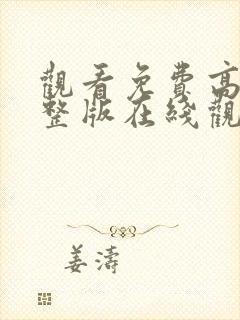 觀看免費高
整版在綫觀
姜濤